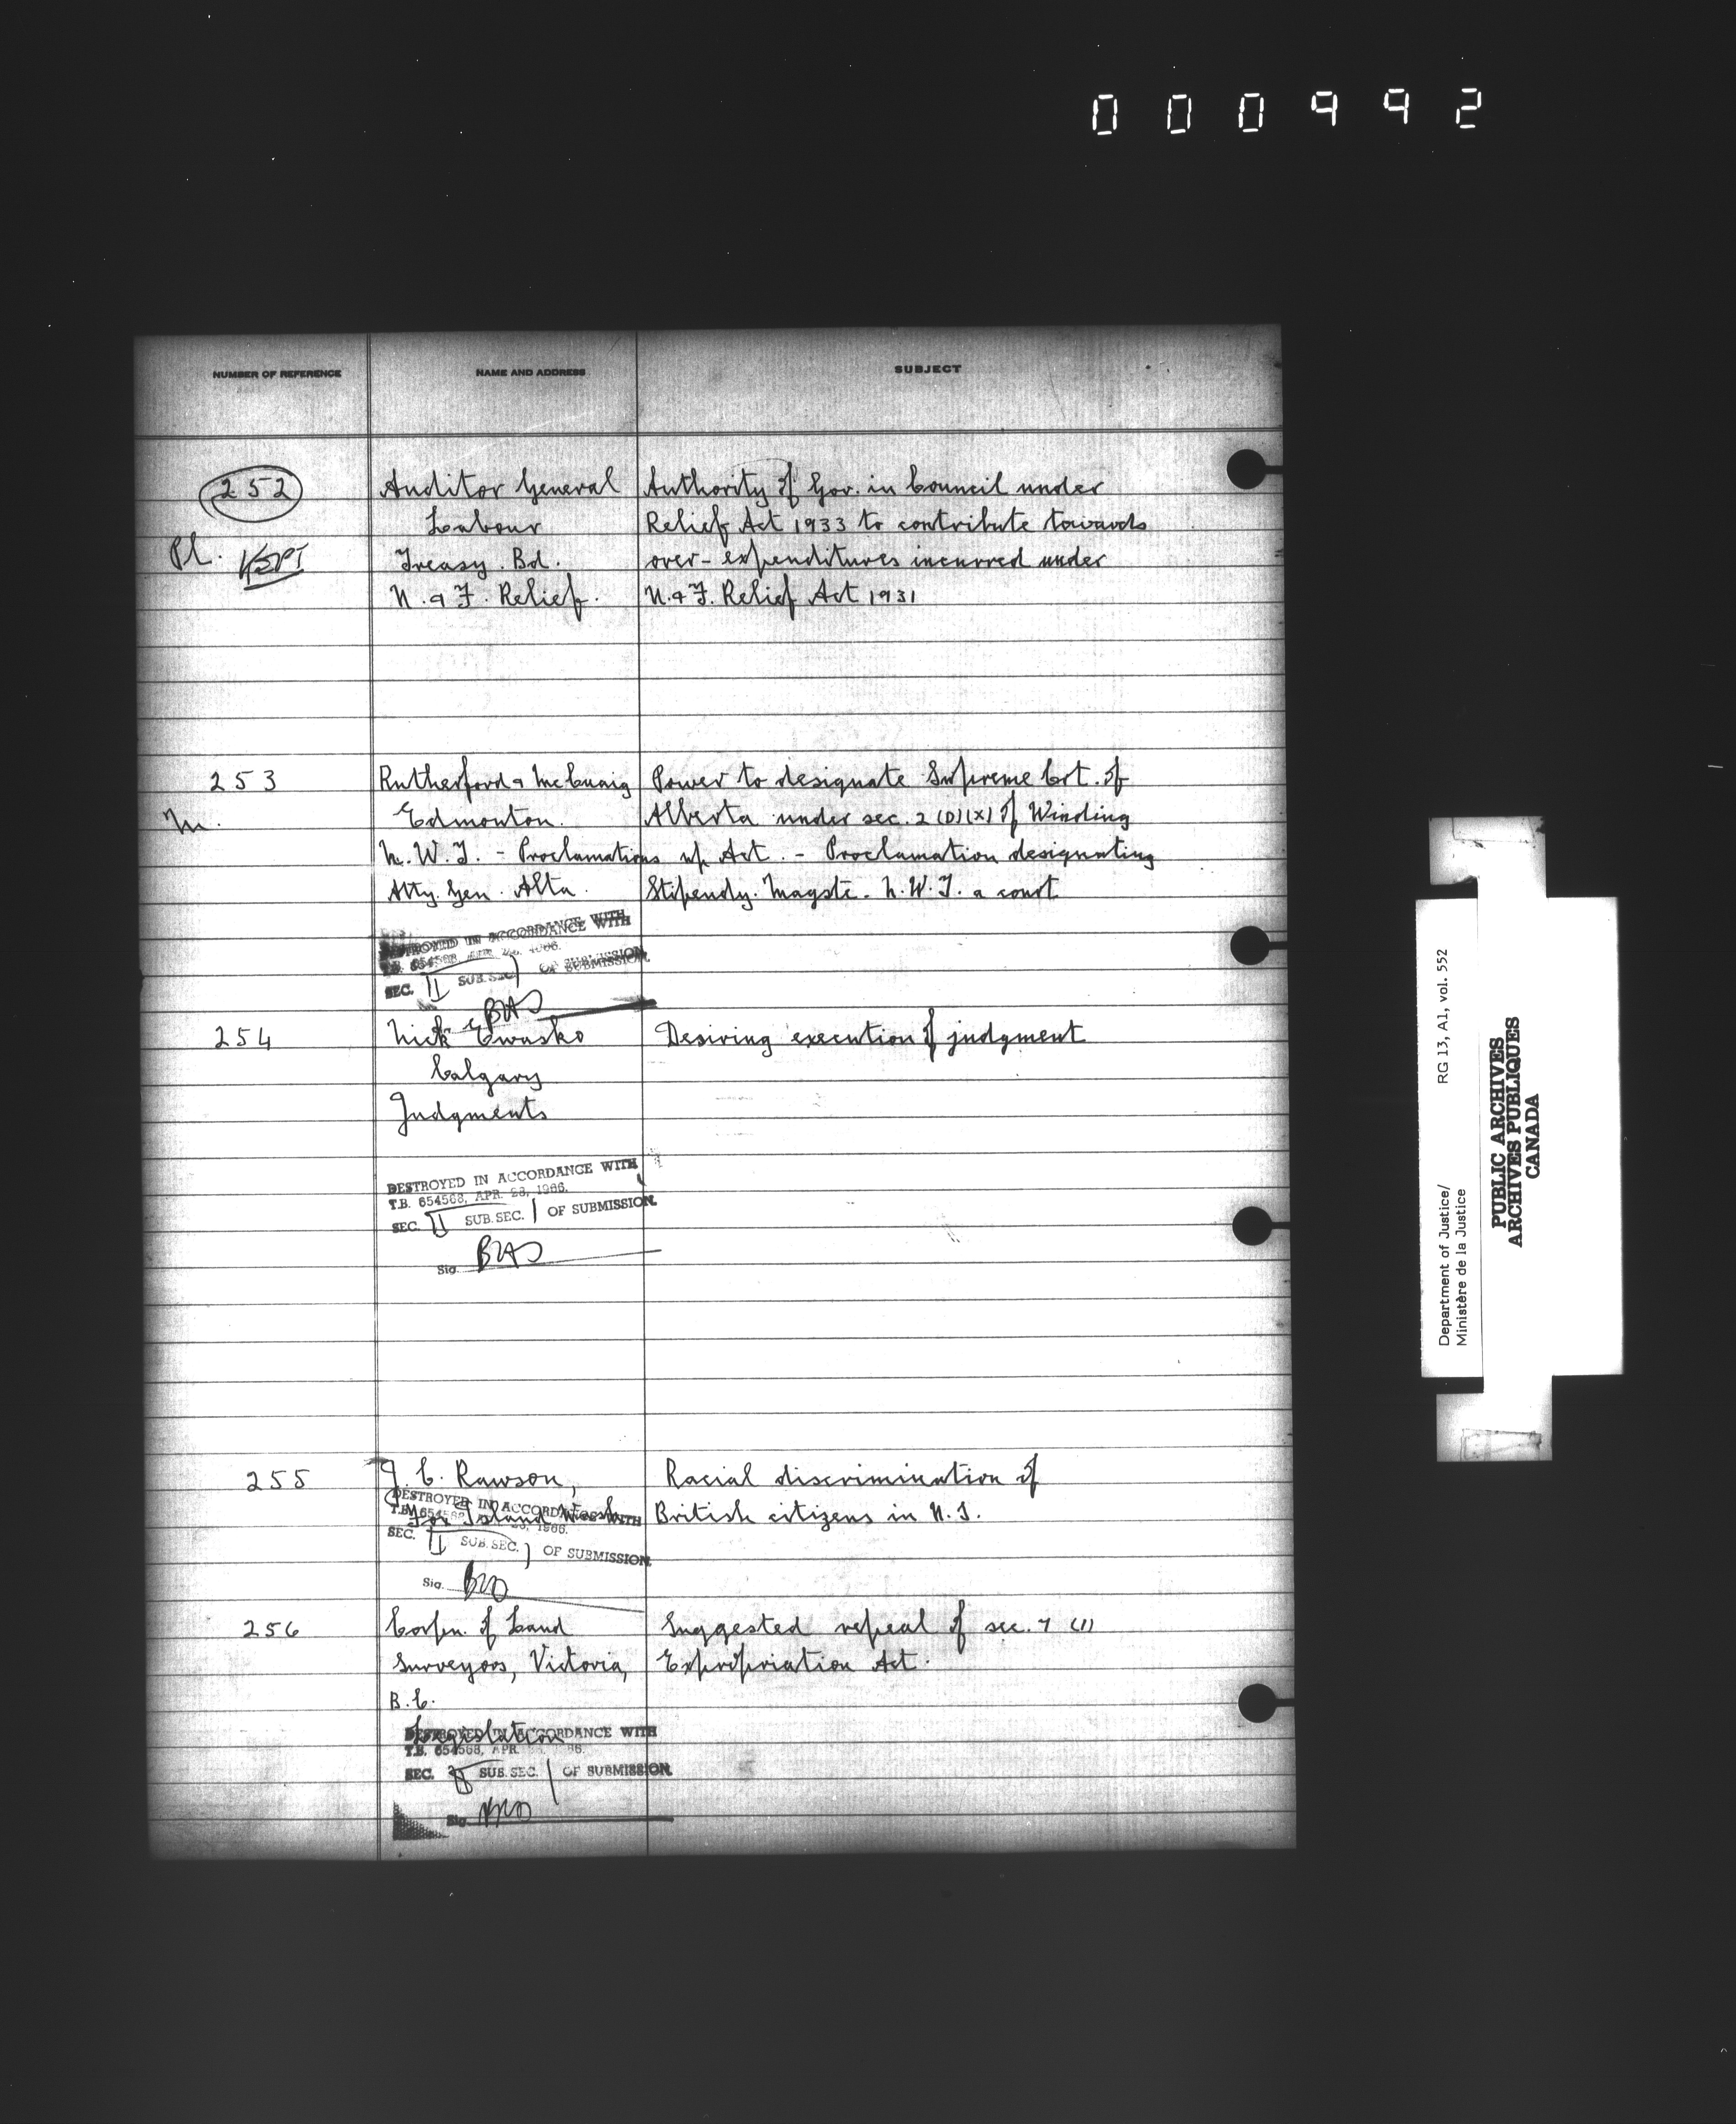 000992
NUMBER OF REFERENCE
NAME AND ADDRESS
SUBJECT
252
Pl. KEPT
Auditor General
Labour
Treasy. Bd.
U. & F. Relief.
Authority of Gov. in Council under
Relief Act 1933 to contribute towards
over-expenditures incurred under
U. & F. Relief Act 1931
253
M.
Rutherford & McCuaig
Edmonton.
N.W.T. - Proclamations
Atty. Gen. Alta.
Power to designate Supreme Crt. of
Alberta under sec. 2 (D)(X) of Winding
up Act. - Proclamation designating
Stipendy. Magste. N.W.T. a court
DESTROYED IN ACCORDANCE WITH
T.B. 654568, APR. 28, 1966.
SEC. II SUB.SEC. 1 OF SUBMISSION.
254
Nick Ewasko
Calgary
Judgments
Desiring execution of judgment
DESTROYED IN ACCORDANCE WITH
T.B. 654568, APR. 28, 1966.
SEC. II SUB.SEC. 1 OF SUBMISSION.
Sig.
255
J. C. Rawson,
Island
Racial discrimination of
British citizens in U.S.
DESTROYED IN ACCORDANCE WITH
T.B. 654568, 1966.
SEC. II SUB.SEC. 1 OF SUBMISSION.
Sig.
256
Corpn. of Land
Surveyors, Victoria,
B.C.
Legislation
Suggested repeal of sec. 7 (1)
Expropriation Act.
DESTROYED IN ACCORDANCE WITH
T.B. 654568, APR.
SEC. II SUB.SEC. 1 OF SUBMISSION.
Sig.
Department of Justice/ RG 13, A1, vol. 552
Ministère de la Justice
PUBLIC ARCHIVES
ARCHIVES PUBLIQUES
CANADA